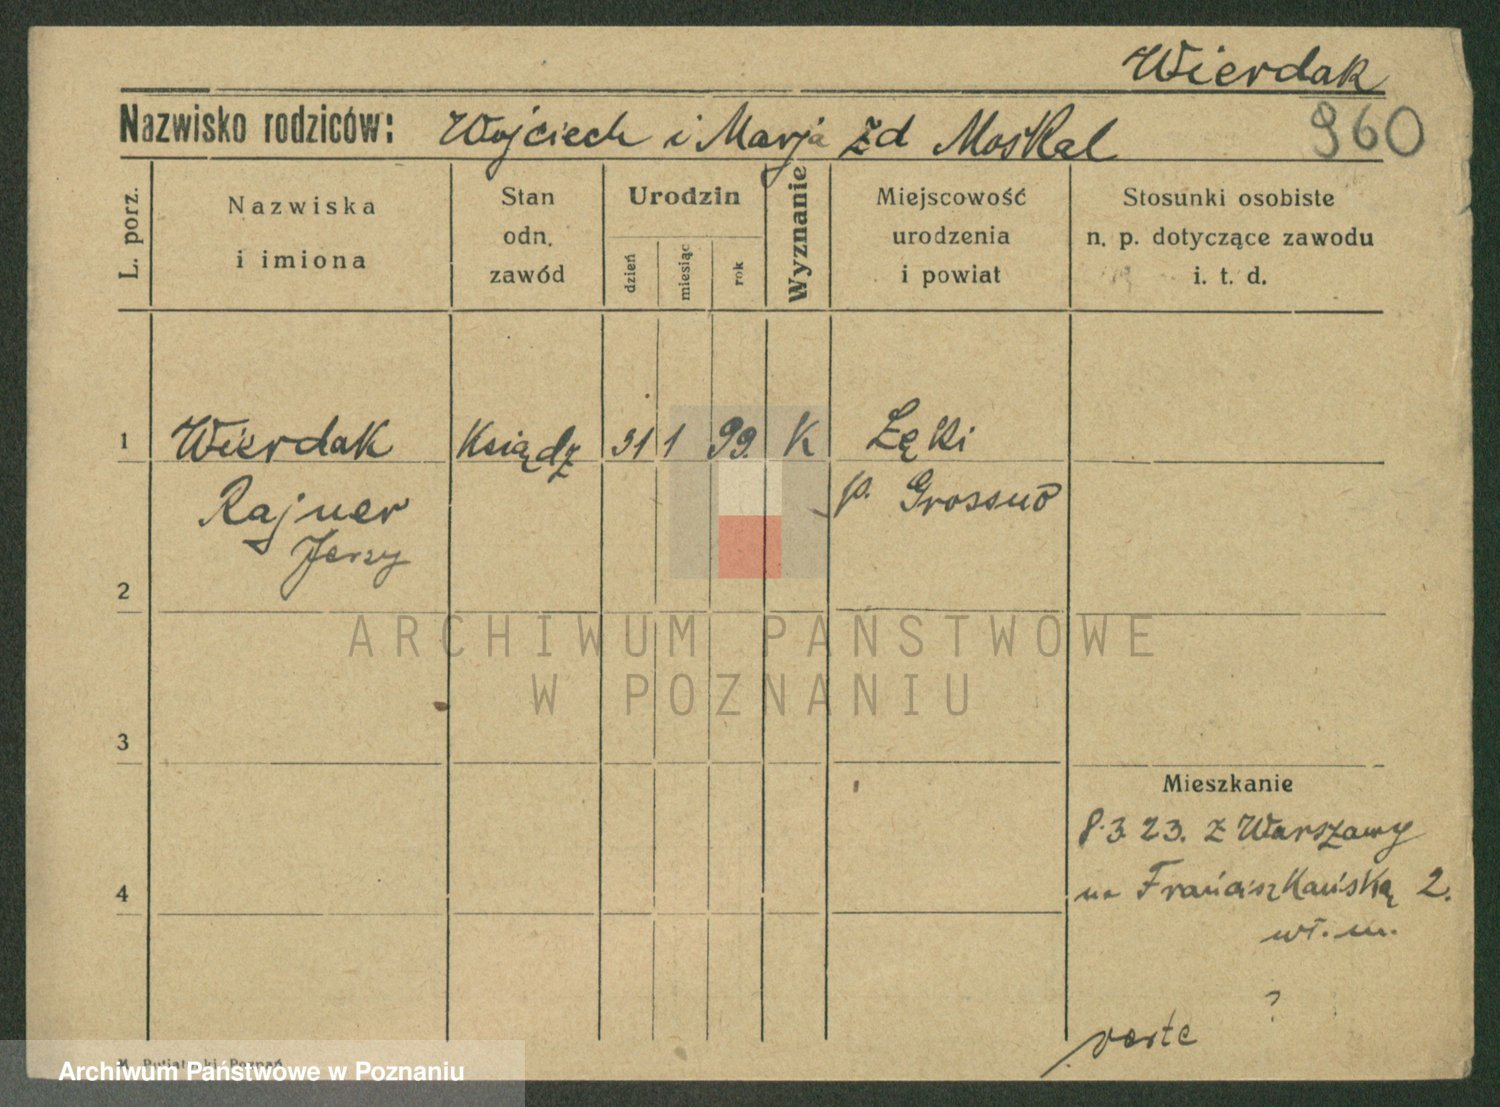 Wierdak
Nazwisko rodziców: Wojciech i Marja zd Moskal
960
L. porz.
Nazwiska
i imiona
Stan
odn.
zawód
Urodzin
dzień
miesiąc
rok
Wyznanie
Miejscowość
urodzenia
i powiat
Stosunki osobiste
n. p. dotyczące zawodu
i. t. d.
1 Wierdak Ksiądz 31 1 99. K Łęki
Rajner p. Grossno
Jerzy
2
ARCHIWUM PAŃSTWOWE
W POZNANIU
3
Mieszkanie
8.3.23. z Warszawy
4 na Franciszkańską 2.
wł. m.
?
verte
Archiwum Państwowe w Poznaniu